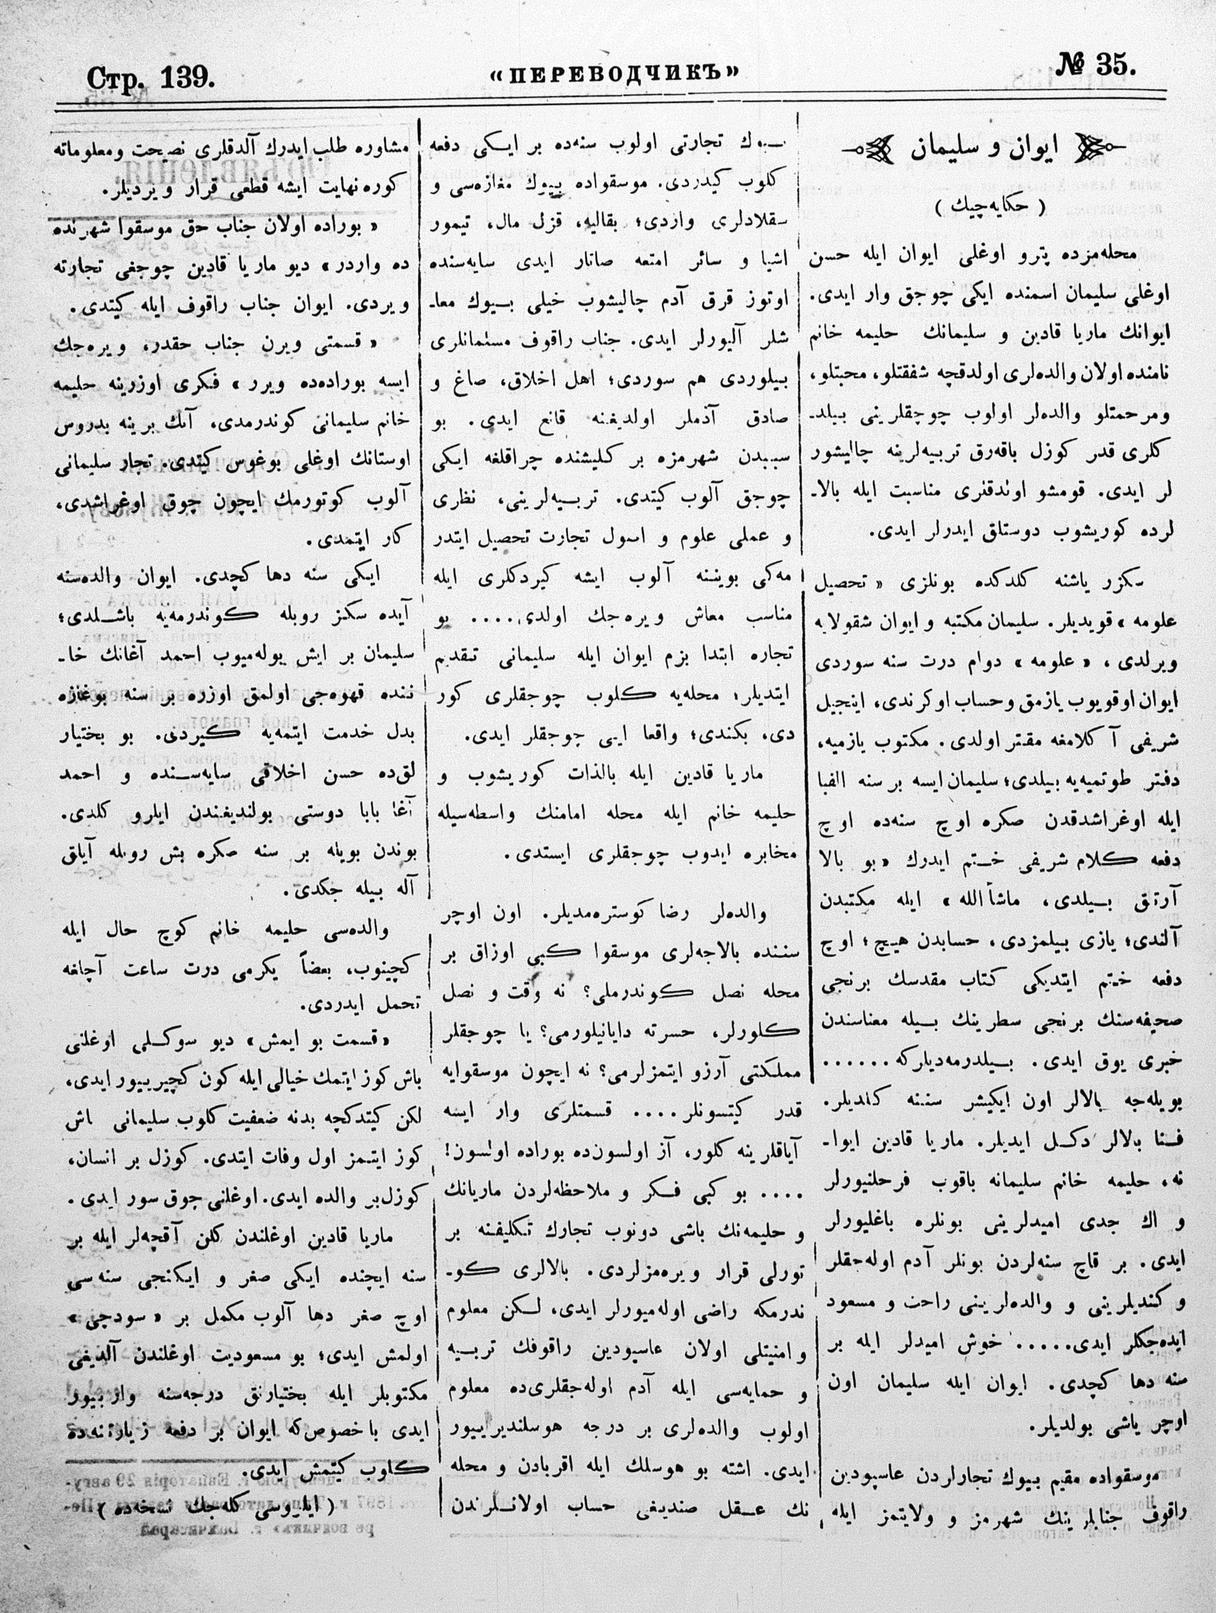 Стр. 139.
«ПЕРЕВОДЧИКЪ»
№ 35.
ايوان و سليمان
( حكايه‌چيك )
محله‌مزده پترو اوغلى ايوان ايله حسن
اوغلى سليمان اسمنده ايكى چوجق وار ايدى.
ايوانك ماريا قادين و سليمانك حليمه خانم
نامنده اولان والده‌لرى اولدقچه شفقتلو، محبتلو،
ومرحمتلو والده‌لر اولوب چوجقلرينى بيلد-
كلرى قدر كوزل باقه‌رق تربيه‌لرينه چاليشور
لر ايدى. قومشو اولدقلرى مناسبت ايله بالا-
لرده كوريشوب دوستلق ايدرلر ايدى.
سكزر ياشنه كلدكده بونلرى « تحصيل
علومه » قويديلر. سليمان مكتبه و ايوان شقولايه
ويرلدى، « علومه » دوام درت سنه سوردى
ايوان اوقويوب يازمق وحساب اوكرندى، اينجيل
شريفى آكلامغه مقتدر اولدى. مكتوب يازميه،
دفتر طوتميه‌يه بيلدى؛ سليمان ايسه بر سنه الفبا
ايله اوغراشدقدن صكره اوچ سنه‌ده اوچ
دفعه كلام شريفى ختم ايدرك « بو بالا
آرتق بيلدى، ماشأالله » ايله مكتبدن
آلندى؛ يازى بيلمزدى، حسابدن هيچ؛ اوچ
دفعه ختم ايتديكى كتاب مقدسك برنجى
صحيفه‌سنك برنجى سطرينك بيله معناسندن
خبرى يوق ايدى. بيلدرمه‌ديلركه......
بويله‌جه بالالر اون ايكيشر سننه كلديلر.
فنا بالالر دكل ايديلر. ماريا قادين ايوا-
نه، حليمه خانم سليمانه باقوب فرحلنيورلر
و اك جدى اميدلرينى بونلره باغليورلر
ايدى. بر قاچ سنه‌لردن بونلر آدم اوله‌جقلر
و كنديلرينى و والده‌لرينى راحت و مسعود
ايده‌جكلر ايدى..... خوش اميدلر ايله بر
سنه دها كچدى. ايوان ايله سليمان اون
اوچر ياشى بولديلر.
موسقواده مقيم بيوك تجارلردن عاسپودين
راقوف جنابلرينك شهرمز و ولايتمز ايله
بيوك تجارتى اولوب سنه‌ده بر ايكى دفعه
كلوب كيدردى. موسقواده بيوك مغازه‌سى و
سقلادلرى واردى؛ بقاليه، قزل مال، تيمور
اشيا و سائر امتعه صاتار ايدى سايه‌سنده
اوتوز قرق آدم چاليشوب خيلى بيوك معا-
شلر آليورلر ايدى. جناب راقوف مسلمانلرى
بيلوردى هم سوردى؛ اهل اخلاق، صاغ و
صادق آدملر اولديغنه قانع ايدى. بو
سببدن شهرمزه بر كليشنده چراقلغه ايكى
چوجق آلوب كيتدى. تربيه‌لرينى، نظرى
و عملى علوم و اسول تجارت تحصيل ايتدر
مه‌كى بويننه آلوب ايشه كيردكلرى ايله
مناسب معاش ويره‌جك اولدى،.... بو
تجاره ابتدا بزم ايوان ايله سليمانى تقديم
ايتديلر؛ محله‌يه كلوب چوجقلرى كور
دى، بكندى؛ واقعا ايى چوجقلر ايدى.
ماريا قادين ايله بالذات كوريشوب و
حليمه خانم ايله محله امامنك واسطه‌سيله
مخابره ايدوب چوجقلرى ايستدى.
والده‌لر رضا كوستره‌مديلر. اون اوچر
سننده بالاجه‌لرى موسقوا كبى اوزاق بر
محله نصل كوندرملى؟ نه وقت و نصل
كلورلر، حسرته دايانيلورمى؟ يا چوجقلر
مملكتى آرزو ايتمزلرمى؟ نه ايچون موسقوايه
قدر كيتسونلر.... قسمتلرى وار ايسه
آياقلرينه كلور، آز اولسون‌ده بوراده اولسون!
.... بو كبى فكر و ملاحظه‌لردن ماريانك
و حليمه‌نك باشى دونوب تجارك تكليفنه بر
تورلى قرار ويره‌مزلردى. بالالرى كو-
ندرمكه راضى اوله‌ميورلر ايدى، لكن معلوم
و امنيتلى اولان عاسپودين راقوفك تربيه
و حمايه‌سى ايله آدم اوله‌جقلرى‌ده معلوم
اولوب والده‌لرى بر درجه هوسلنديرييور
ايدى. اشته بو هوسلك ايله اقربادن و محله
نك عقل صنديغى حساب اولانلرندن
مشاوره طلب ايدرك آلدقلرى نصيحت ومعلوماته
كوره نهايت ايشه قطعى قرار ويرديلر.
« بوراده اولان جناب حق موسقوا شهرنده
ده واردر » ديو ماريا قادين چوجغى تجارته
ويردى. ايوان جناب راقوف ايله كيتدى.
« قسمتى ويرن جناب حقدر، ويره‌جك
ايسه بوراده‌ده ويرر » فكرى اوزرينه حليمه
خانم سليمانى كوندرمدى، آنك يرينه بدروس
اوستانك اوغلى بوغوس كيتدى. تجار سليمانى
آلوب كوتورمك ايچون چوق اوغراشدى،
كار ايتمدى.
ايكى سنه دها كچدى. ايوان والده‌سنه
آيده سكز روبله كوندرمه‌يه باشلدى؛
سليمان بر ايش بوله‌ميوب احمد آغانك خا-
ننده قهوه‌جى اولمق اوزره بر سنه بوغازه
بدل خدمت ايتمه‌يه كيردى. بو بختيار
لق‌ده حسن اخلاقى سايه‌سنده و احمد
آغا بابا دوستى بولنديغندن ايلرو كلدى.
بوندن بويله بر سنه صكره بش روبله آياق
آله بيله جكدى.
والده‌سى حليمه خانم كوچ حال ايله
كچينوب، بعضاً يكرمى درت ساعت آچلغه
تحمل ايدردى.
«قسمت بو ايمش» ديو سوكلى اوغلنى
باش كوز ايتمك خيالى ايله كون كچيرييور ايدى،
لكن كيتدكچه بدنه ضعفيت كلوب سليمانى باش
كوز ايتمز اول وفات ايتدى. كوزل بر انسان،
كوزل‌بر والده ايدى. اوغلنى چوق سور ايدى.
ماريا قادين اوغلندن كلن آقچه‌لر ايله بر
سنه ايچنده ايكى صغر و ايكنجى سنه سى
اوچ صغر دها آلوب مكمل بر « سودجى »
اولمش ايدى؛ بو مسعوديت اوغلندن آلديغى
مكتوبلر ايله بختيارلق درجه‌سنه وارييور
ايدى با خصوص‌كه ايوان بر دفعه زيارتنه‌ده
كلوب كيتمش ايدى.
( ايلروسى كله‌جك نسخه‌ده )